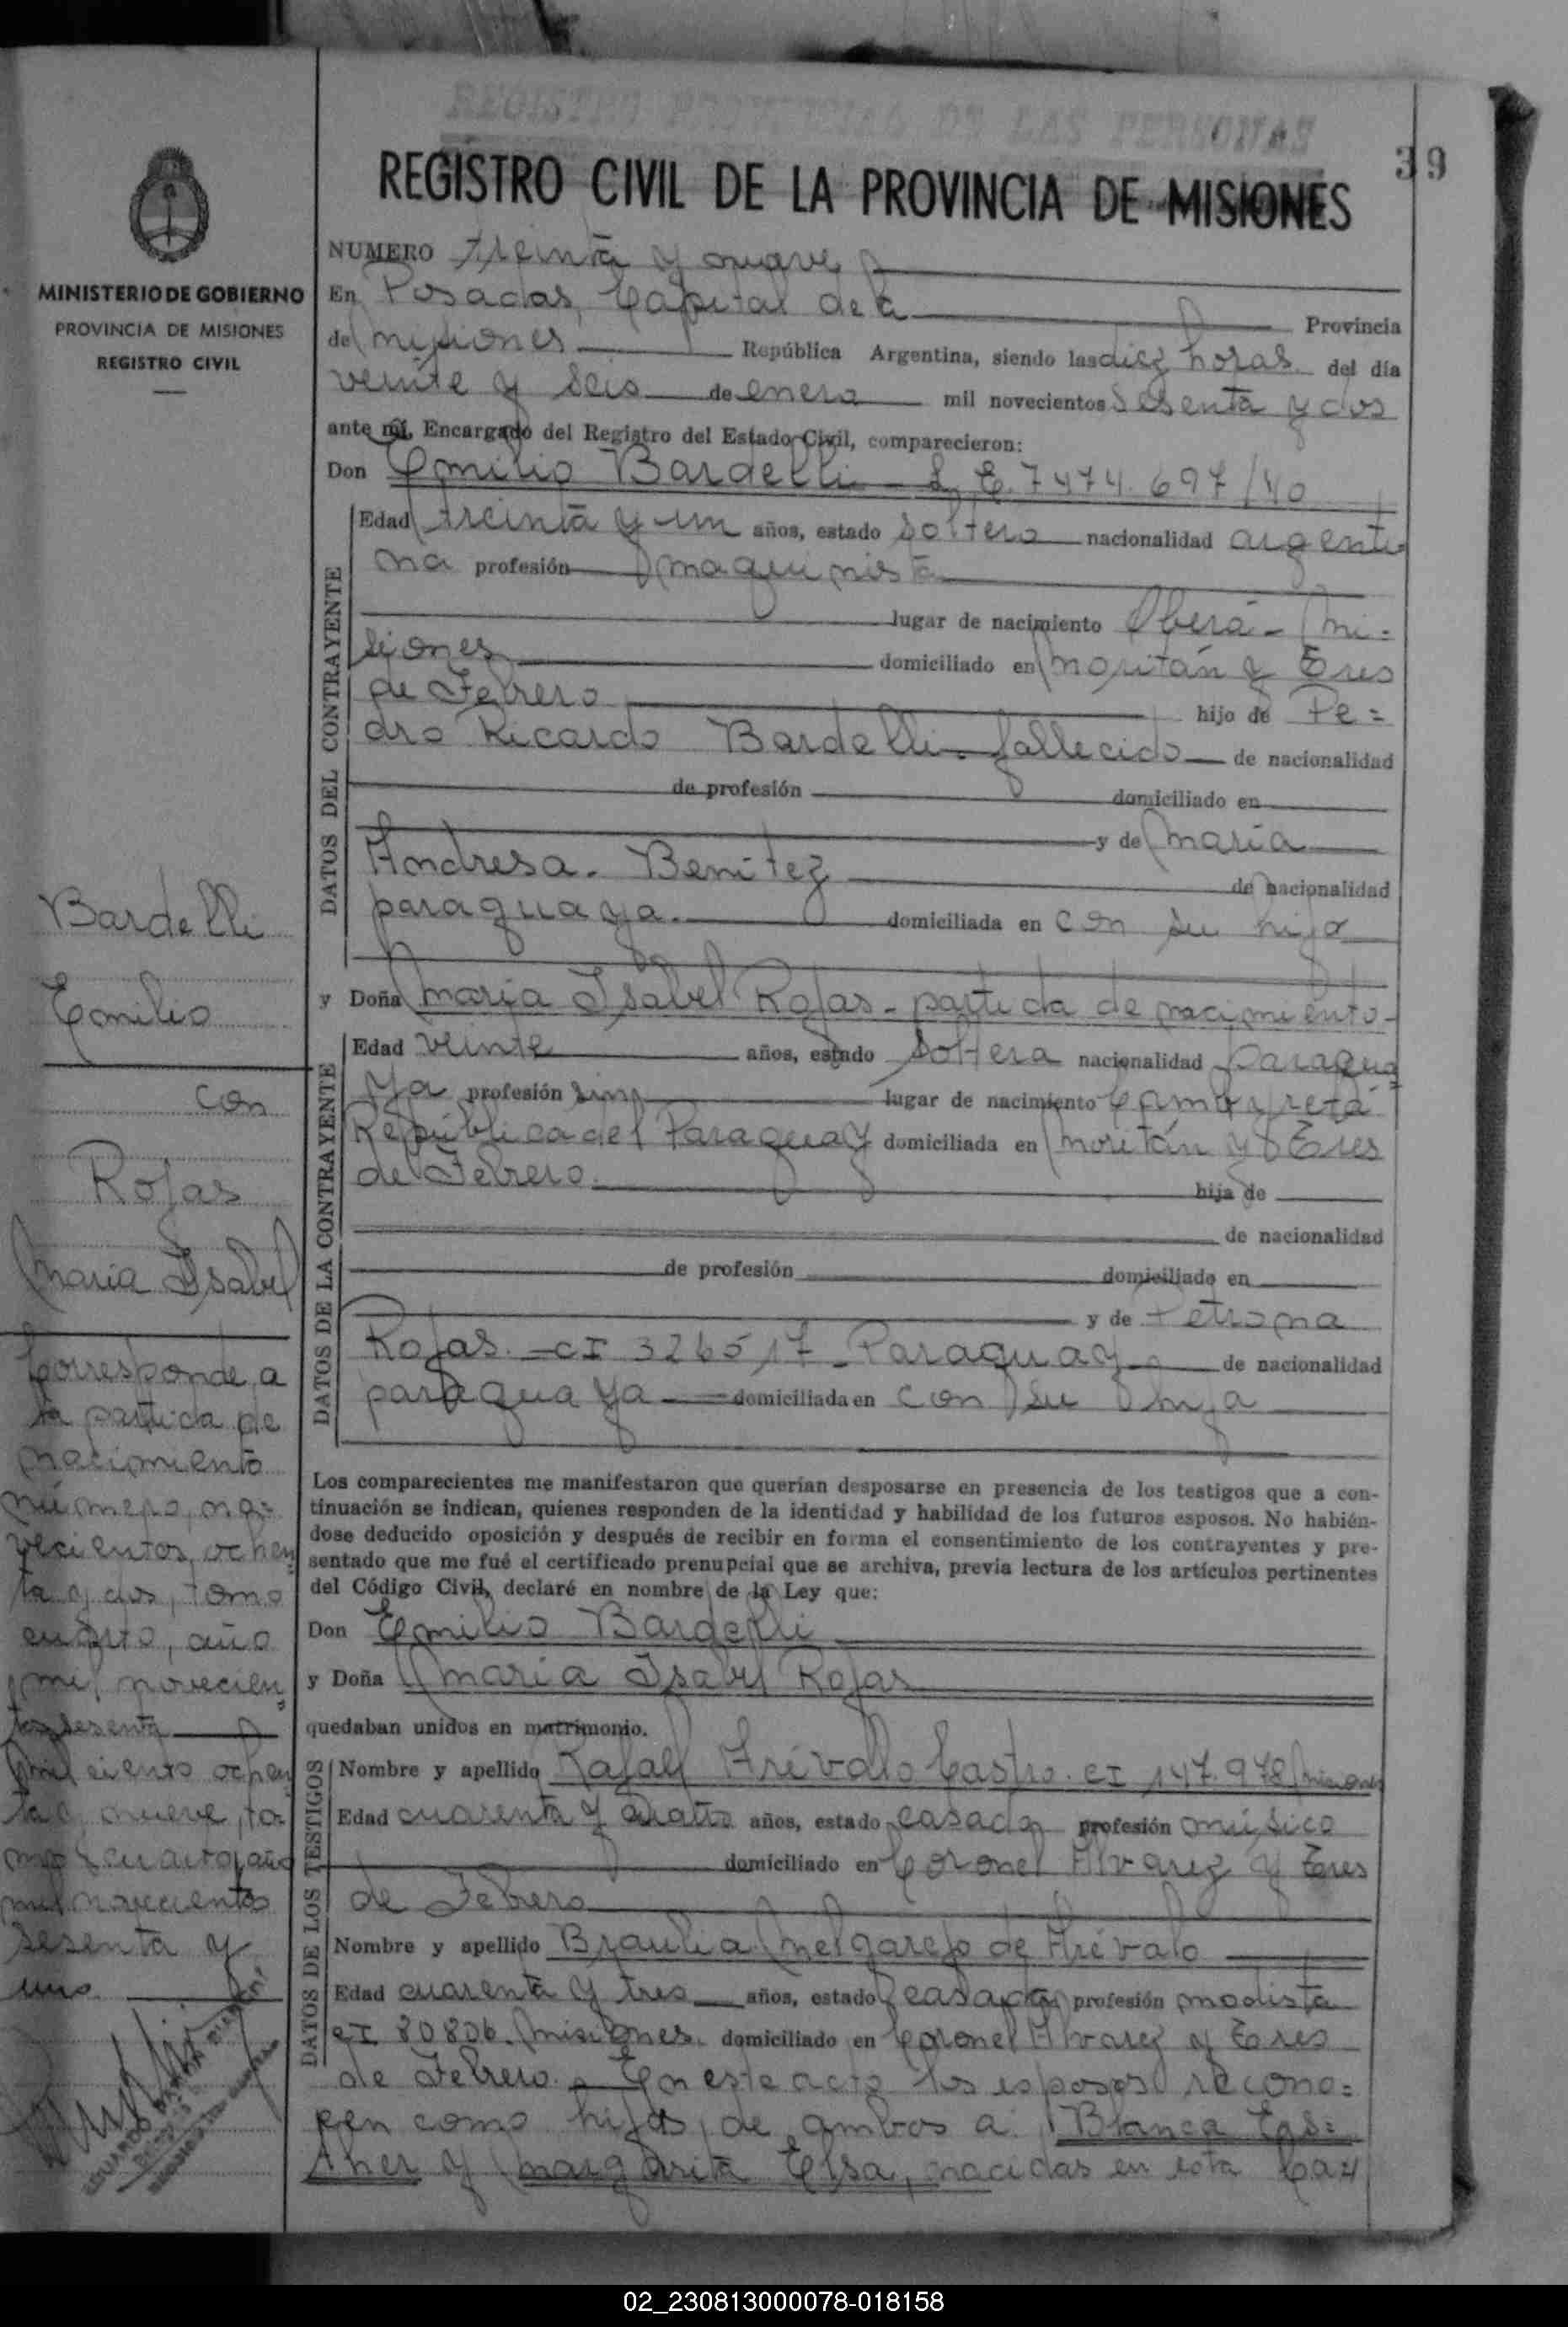 REGISTRO PROVINCIAL DE LAS PERSONAS
39
REGISTRO CIVIL DE LA PROVINCIA DE MISIONES
MINISTERIO DE GOBIERNO
PROVINCIA DE MISIONES
REGISTRO CIVIL
NUMERO treinta y nueve
En Posadas, Capital de la Provincia
de Misiones República Argentina, siendo las diez horas del día
veinte y seis de enero mil novecientos sesenta y dos
ante mí, Encargado del Registro del Estado Civil, comparecieron:
Don Emilio Bardelli L.E. 7474.697/40
DATOS DEL CONTRAYENTE
Edad treinta y un años, estado soltero nacionalidad argenti-
na profesión maquinista
lugar de nacimiento Oberá - Mi=
siones domiciliado en Moritán y Tres
de Febrero hijo de Pe=
dro Ricardo Bardelli - fallecido de nacionalidad
de profesión domiciliado en
y de María
Andresa Benitez de nacionalidad
paraguaya domiciliada en con su hijo
y Doña María Isabel Rojas - partida de nacimiento -
DATOS DE LA CONTRAYENTE
Edad veinte años, estado soltera nacionalidad paragua=
ya profesión sin lugar de nacimiento Cambyretá
República del Paraguay domiciliada en Moritán y Tres
de Febrero hija de
de nacionalidad
de profesión domiciliado en
y de Petrona
Rojas - CI 326517 - Paraguay de nacionalidad
paraguaya domiciliada en con su hija
Los comparecientes me manifestaron que querían desposarse en presencia de los testigos que a con-
tinuación se indican, quienes responden de la identidad y habilidad de los futuros esposos. No habién-
dose deducido oposición y después de recibir en forma el consentimiento de los contrayentes y pre-
sentado que me fué el certificado prenupcial que se archiva, previa lectura de los artículos pertinentes
del Código Civil, declaré en nombre de la Ley que:
Don Emilio Bardelli
y Doña María Isabel Rojas
quedaban unidos en matrimonio.
DATOS DE LOS TESTIGOS
Nombre y apellido Rafael Arévalo Castro CI 147.978 Misiones
Edad cuarenta y cuatro años, estado casado profesión músico
domiciliado en Coronel Alvarez y Tres
de Febrero
Nombre y apellido Braulia Melgarejo de Arévalo
Edad cuarenta y tres años, estado casada profesión modista
CI 80806. Misiones. domiciliado en Coronel Alvarez y Tres
de Febrero. En este acto los esposos recono=
cen como hijas de ambos a Blanca Es=
ther y Margarita Elsa, nacidas en esta Ca=
Bardelli
Emilio
con
Rojas
María Isabel
Corresponde a
la partida de
nacimiento
número, no=
vecientos ochen=
ta y dos, tomo
cuarto, año
mil novecien=
tos sesenta
mil ciento ochen
ta y nueve, to
mo cuarto, año
mil novecientos
sesenta y
uno.
02_230813000078-018158